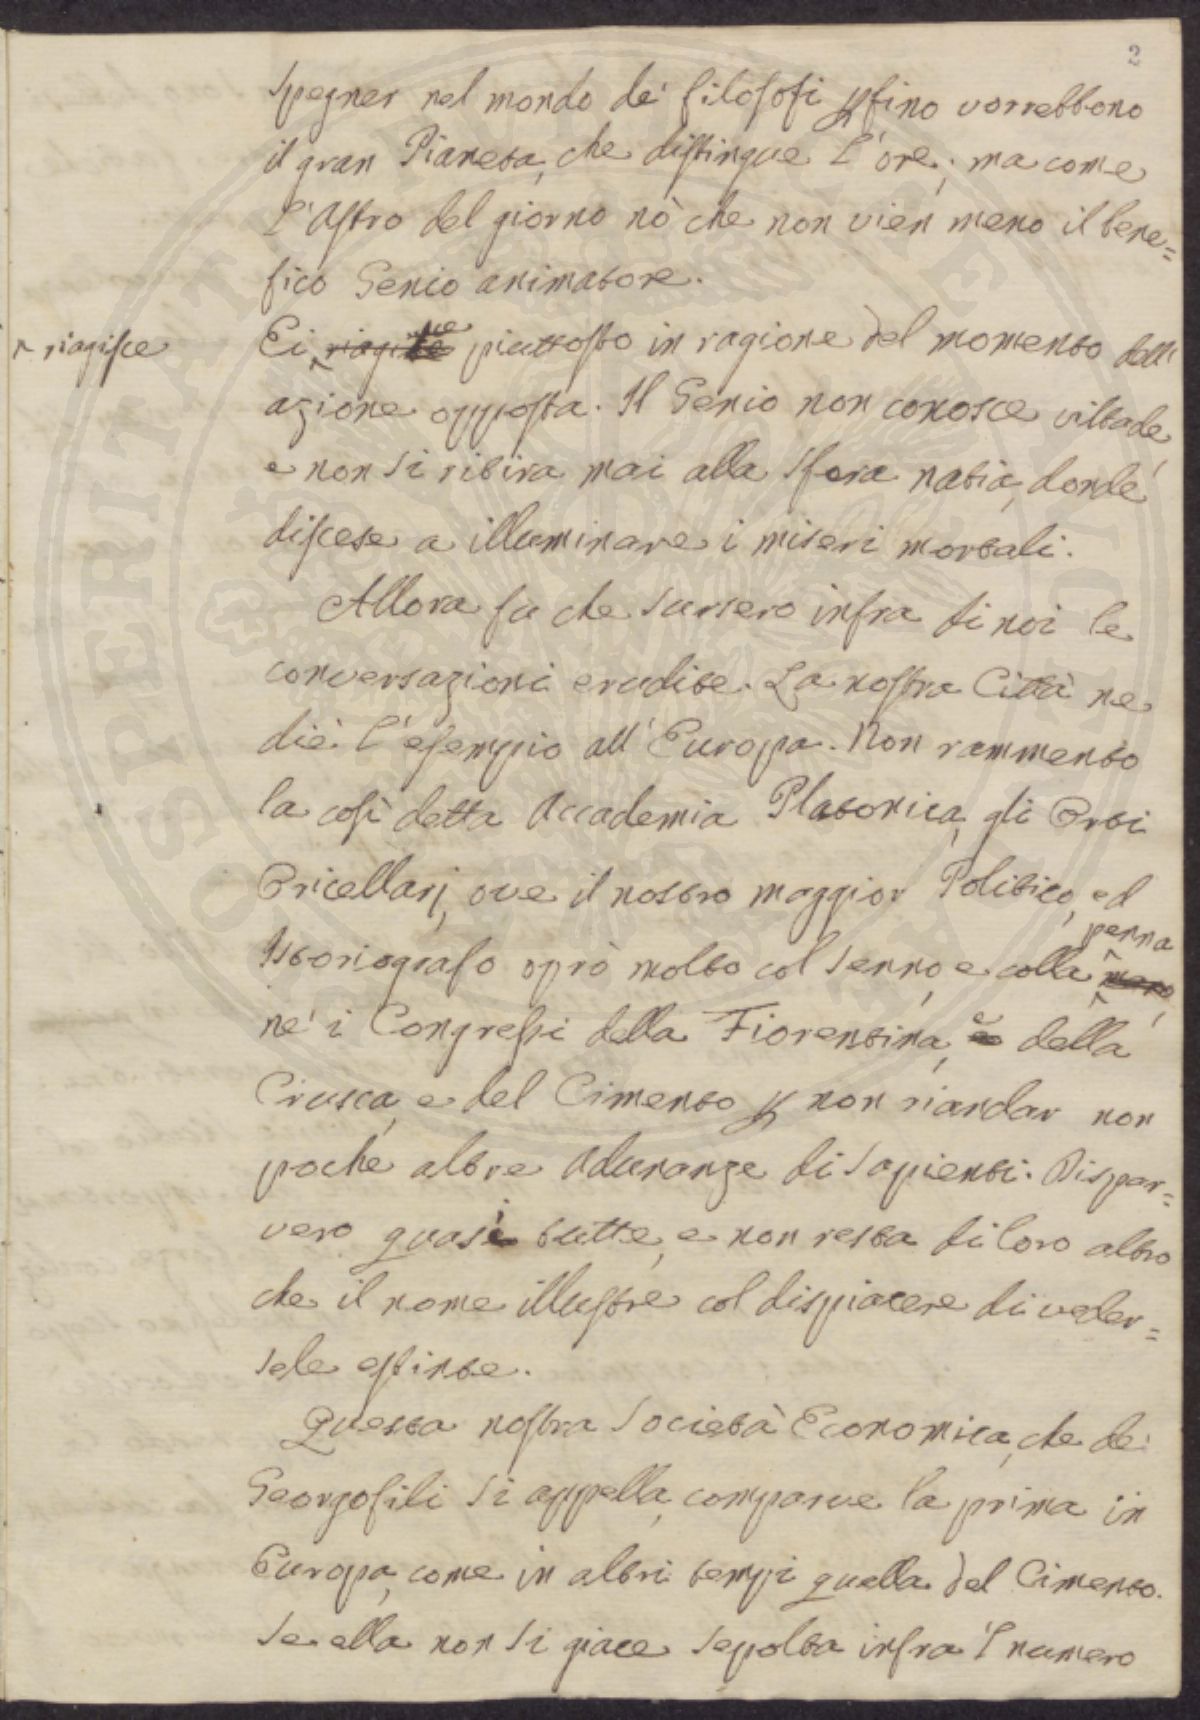 2
spegner nel mondo de' filosofi pfino vorrebbono
il gran Pianeta, che distingue l'ore; ma come
l'Astro del giorno nò che non vien meno il bene=
fico Genio animatore.
^ riagisce
Ei ^ piuttosto in ragione del momento dell'
azione opposta. Il Genio non conosce viltade,
e non si ritira mai alla sfera natìa, donde
discese a illuminare i miseri mortali.
Allora fu che sursero infra di noi le
conversazioni erudite. La nostra Città ne
diè l'esempio all'Europa. Non rammento
la così detta Accademia Platonica, gli Orti
Oricellarj, ove il nostro maggior Politico, ed
penna
Istoriografo oprò molto col senno, e colla ^ mano,
nè i Congressi della Fiorentina, e della
Crusca, e del Cimento p non riandar non
poche altre adunanze di sapienti. Dispar=
vero quasi tutte, e non resta di loro altro
che il nome illustre col dispiacere di veder=
sele estinte.
Questa nostra Società Economica, che de'
Georgofili si appella, comparve la prima in
Europa, come in altri tempi quella del Cimento.
Se ella non si giace sepolta infra 'l numero
SOSPERITATI PUBLICAE AUGENDAE